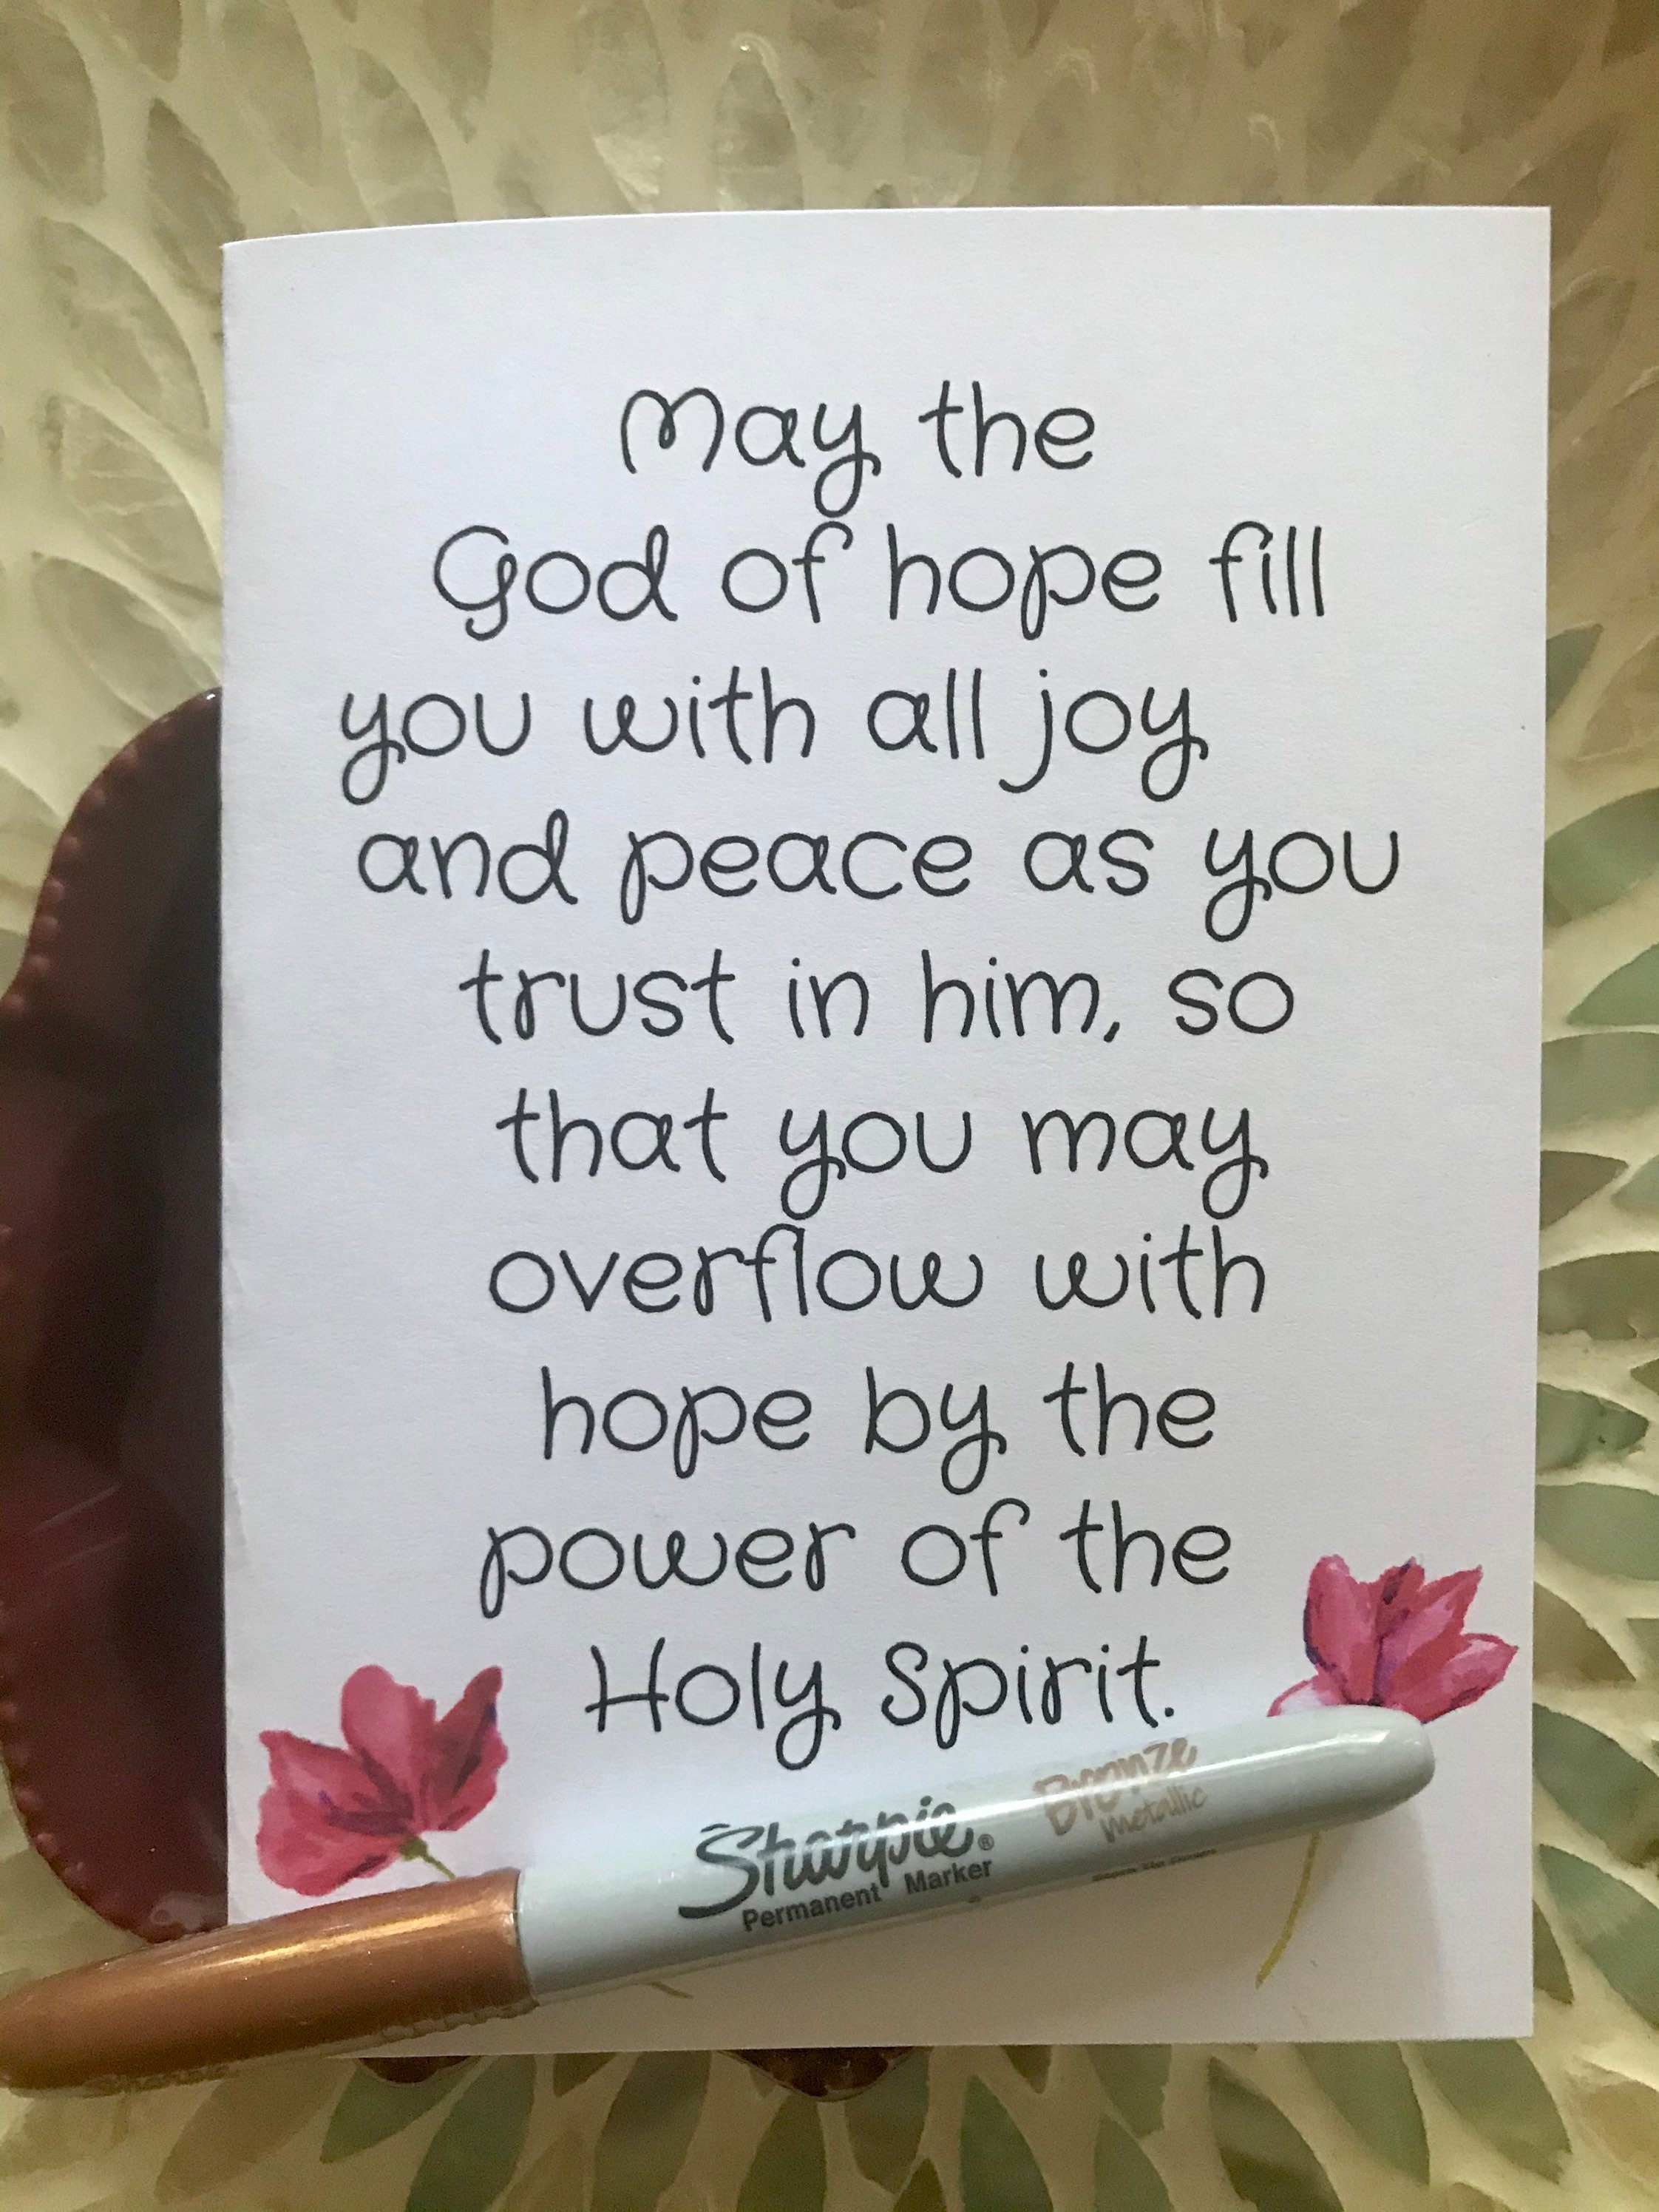 May the
God of hope fill
you with all joy
and peace as you
trust in him, so
that you may
overflow with
hope by the
power of the
Holy Spirit.
Sharpie®
Permanent Marker
Bronze
Metallic